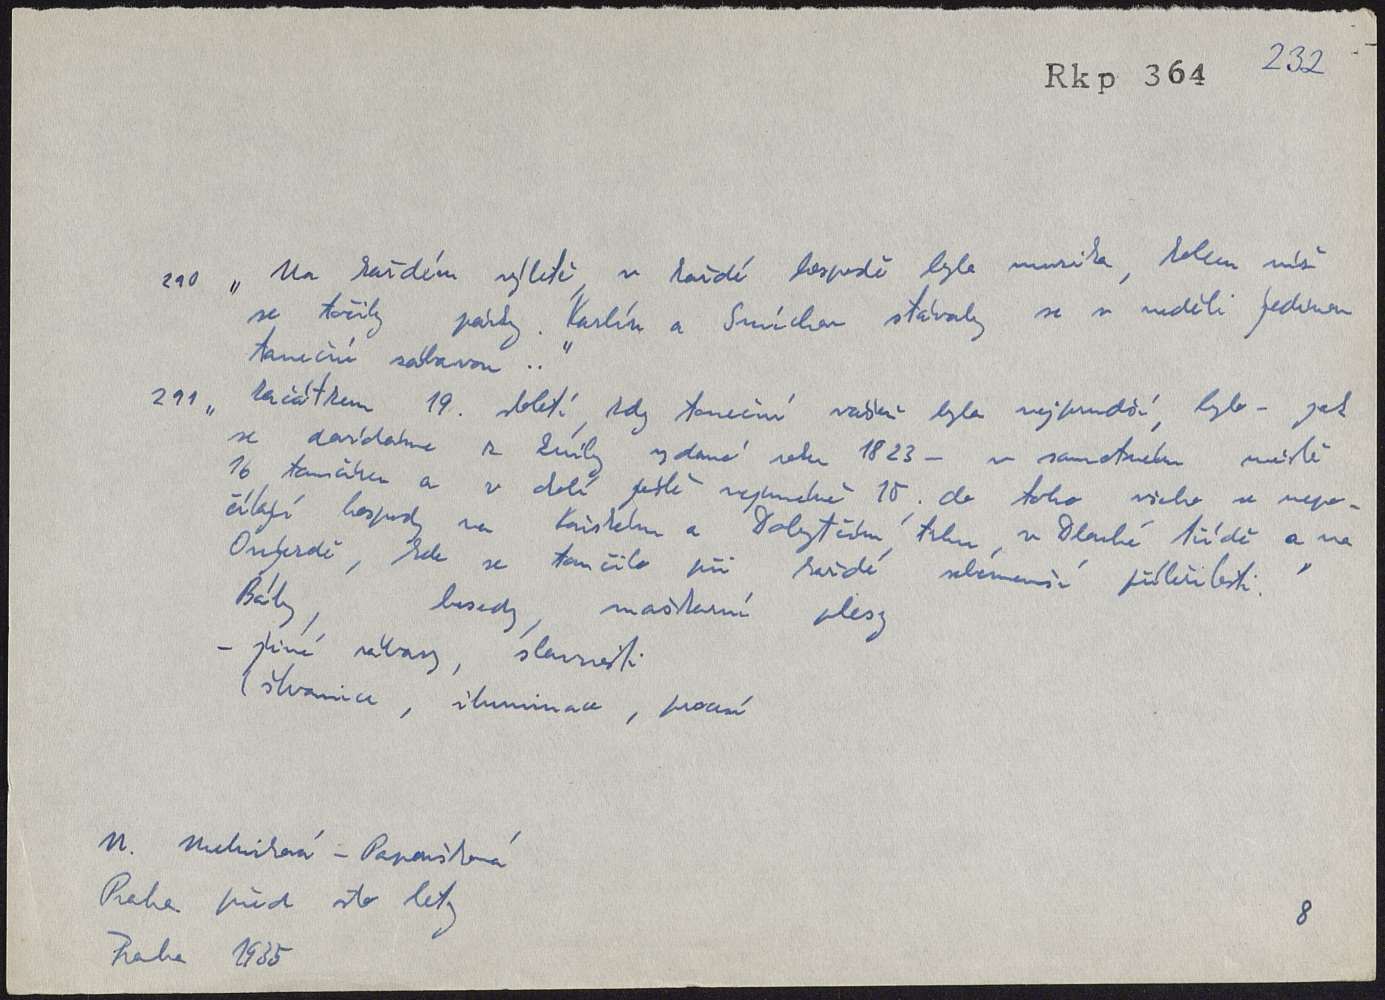 232
Rkp 364
290 „Na každém výletě, v každé hospodě byla muzika, kolem níž
se točily párky. Karlín a Smíchov stávaly se v neděli jedinou
taneční zábavou .."
291 „Začátkem 19. století, kdy taneční vášeň byla nejprudší, bylo - jak
se dovídáme z knihy vydané roku 1823 - v samotném městě
16 tančíren a v okolí ještě nejméně 15, do toho všeho se nepo-
čítají hospody na Koňském a Dobytčím trhu, v Dlouhé třídě a na
Oujezdě, kde se tančilo při každé sebemenší příležitosti."
Bály, besedy, maškarní plesy
- jiné zábavy, slavnosti
(štvanice, iluminace, procesí
N. Melniková - Papoušková
Praha před sto lety
Praha 1935
8